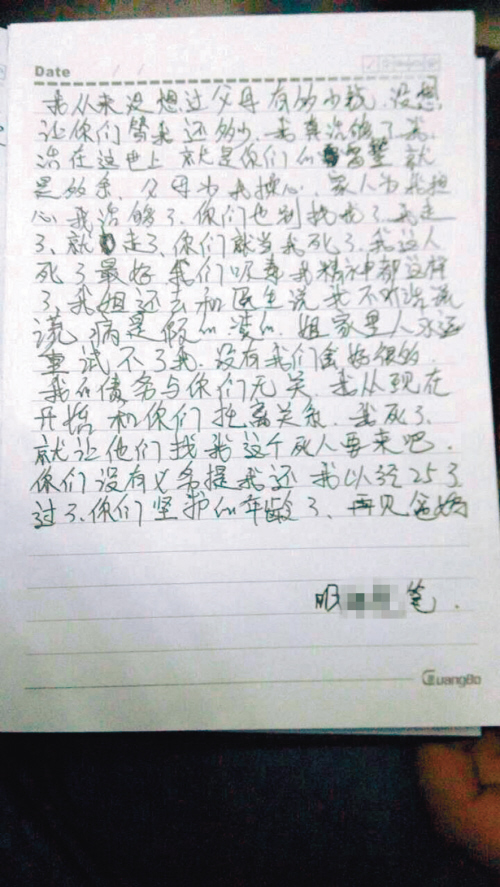 Date
我从来没想过父母有多少钱.没想
让你们替我还多少.我真活够了.我
活在这世上 就是你们的 就
是效系.父母为我操心.家人为我担
心我活够了.你们也别找我了.我走
了、就 走了、你们就当我死了.我这人
死了最好.我们吸毒.我精神都这样
了、我姐还去和医生说我不对说谎
谎 病是假的 凑的.姐家里人永远
重试不了我.没有我们会好很的.
我的债务与你们无关.我从现在
开始和你们 离关系.我死了.
就让他们找我这个死人要来吧.
你们没有义务提我还 我以经25了
过了.你们坚护的年龄了、再见爸妈
笔.
GuangBo